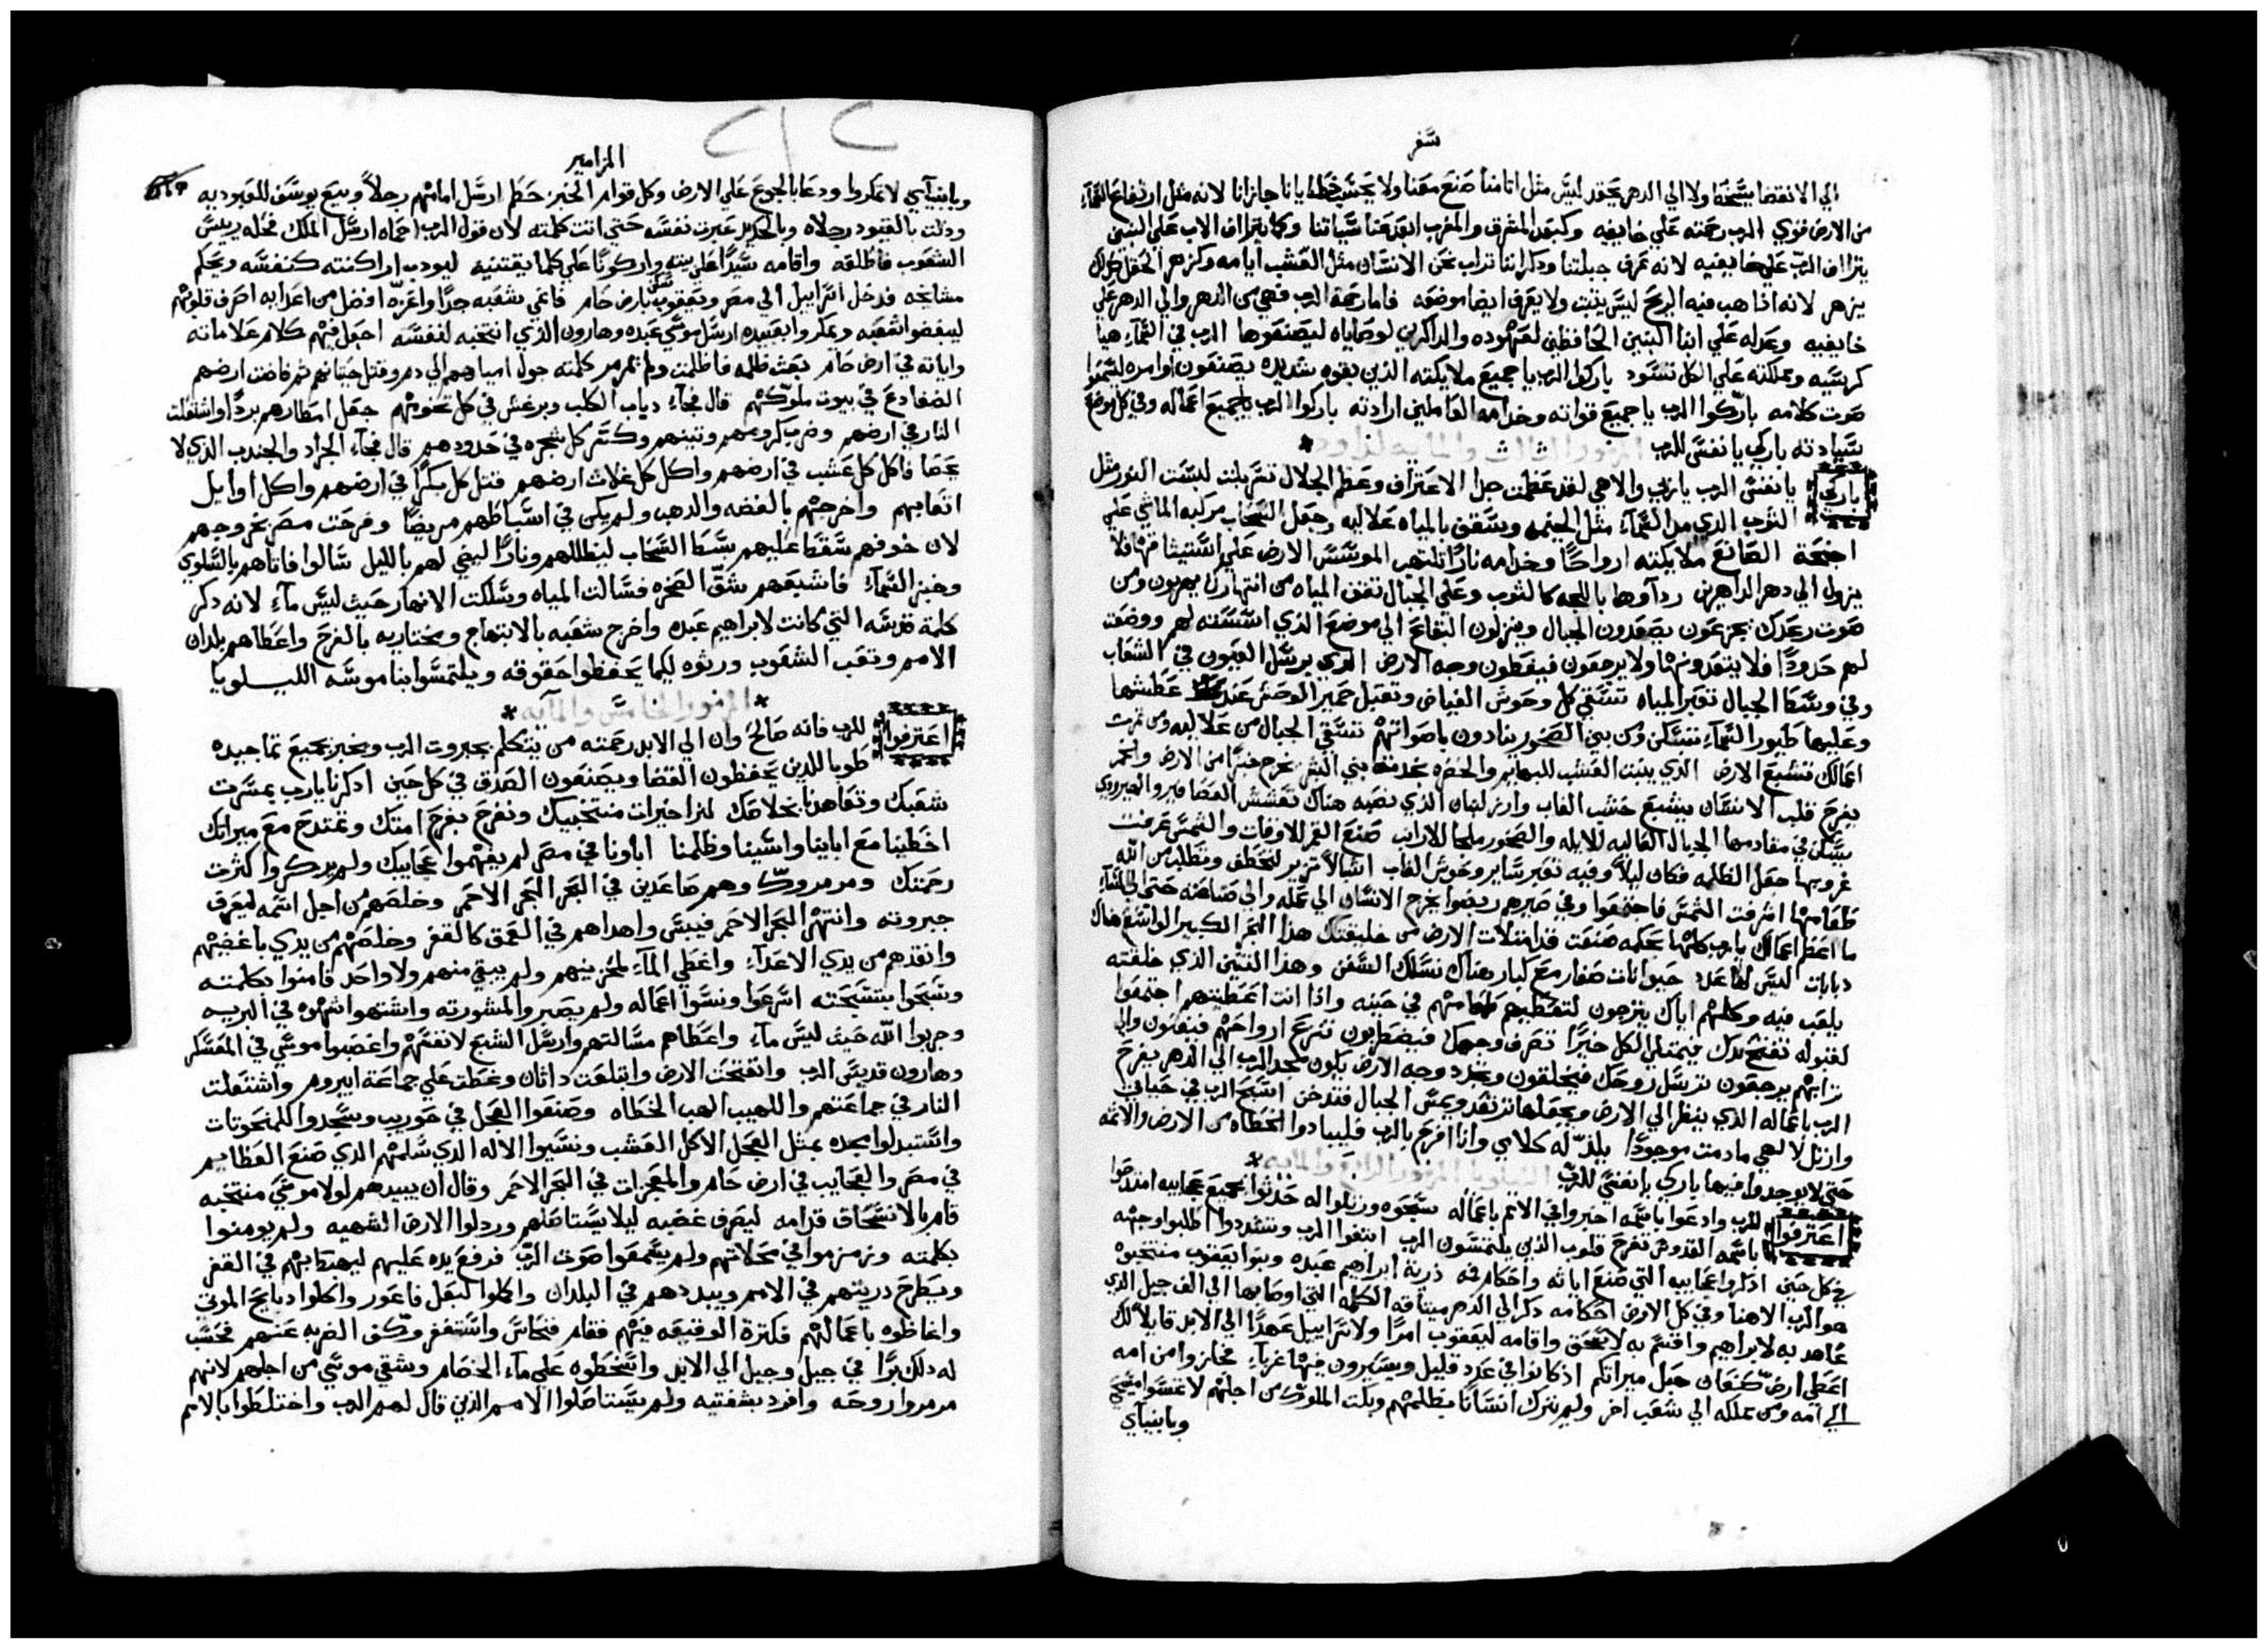 سفر
الي الانقضا يسخط ولا الي الدهر يحقد ليس مثل اثامنا صنع معنا ولا بحسب خطايانا جازانا لانه مثل ارتفاع السمآء
من الارض قوي الرب رحمته علي خايفيه وكبعد المشرق والمغرب ابعد عنا سياتنا وكما يتراف الاب علي البنين
يتراف الرب علي خايفيه لانه عرف جبلتنا وذكر اننا تراب نحن الانسان مثل العشب ايامه وكزهر الحقل كذلك
يزهر لانه اذا هب فيه الريح ليس يثبت ولا يعرف ايضا موضعه فاما رحمة الرب فهي من الدهر والي الدهر علي
خايفيه وعدله علي ابنا البنين الحافظين لعهوده والذاكرين لوصاياه ليصنعوها الرب في السمآء هيا
كرسيه ومملكته علي الكل تسود باركوا الرب يا جميع ملايكته الذين بقوه شديده يصنعون اوامره ليسمعوا
صوت كلامه باركوا الرب يا جميع قواته وخدامه العاملين ارادته باركوا الرب يا جميع اعماله وفي كل موضع
سيادته باركي يا نفسي للرب المزمور الثالث والمايه لداود
باركي يا نفسي الرب يا ربي والاهي لقد عظمت جدا الاعتراف وعظم الجلال تسربلت لبست النور مثل
الثوب الذي مد السمآء مثل الخيمه وسقف بالمياه علاليه وجعل السحاب مركبه الماشي علي
اجنحة الصانع ملايكته ارواحًا وخدامه نارًا تلتهب الموسس الارض علي استيثاقها فلا
يزول الي دهر الداهرين ردآوها باللجه كالثوب وعلي الجبال تقف المياه من انتهارك يهربون ومن
صوت رعدك يجزعون يصعدون الجبال وينزلون البقاع الي موضع الذي اسسته لهم ووضعت
لهم حدودًا فلا يتعدونها ولا يرجعون فيغطون وجه الارض الذي يرسل العيون في الشعاب
وفي وسط الجبال تعبر المياه تسقي كل وحوش الغياض وتقبل حمير الوحش عند عطشها
وعليها طيور السمآء تسكن ومن بين الصخور ينادون باصواتهم تسقي الجبال من علاليه ومن ثمرت
اعمالك تشبع الارض الذي ينبت العشب للبهايم والخضره لخدمة بني البشر يخرج خبزًا من الارض والخمر
يفرح قلب الانسان يشبع خشب الغاب وارز لبنان الذي نصبه هناك تعشش العصافير والهيرودي
يسكن في مقادمها الجبال العاليه للايله والصخور ملجا للارانب صنع القمر للاوقات والشمس عرفت
غروبها جعل الظلمه فكان ليلًا وفيه تعبر ساير وحوش الغاب اشبالًا تزير لتخطف وتطلب من الله
طعامها اشرقت الشمس فاجتمعوا وفي صيرهم ربضوا يخرج الانسان الي عمله والي صناعته حتي الي المسآء
ما اعظم اعمالك يا رب كلها بحكمه صنعت قد امتلات الارض من خليقتك هذا البحر الكبير الواسع هناك
دبابات ليس لها عدد حيوانات صغار مع كبار هناك تسلك السفن وهذا التنين الذي خلقته
يلعب فيه وكلهم اياك يترجون لتعطيهم طعامهم في حينه واذا انت اعطيتهم اجتمعوا
لقبوله تفتح يدك فيمتلي الكل خيرًا تصرف وجهك فيضطربون تنزع ارواحهم فيفنون والي
ترابهم يرجعون ترسل روحك فيخلقون وتجدد وجه الارض يكون مجد الرب الي الدهر يفرح
الرب باعماله الذي ينظر الي الارض ويجعلها ترتعد ويمس الجبال فتدخن اسبح الرب في حياتي
وارتل لالهي ما دمت موجودًا يلذ له كلامي وانا افرح بالرب فليبادوا الخطاه من الارض والاثمه
حتي لا يوجدوا فيها باركي يا نفسي للرب الليلويا المزمور الرابع والمايه
اعترفوا للرب وادعوا باسمه اخبروا في الامم باعماله سبحوه ورتلوا له حدثوا بجميع عجايبه امتدحوا
باسمه القدوس تفرح قلوب الذين يلتمسون الرب ابتغوا الرب وتشددوا اطلبوا وجهه
في كل حين اذكروا عجايبه التي صنع اياته واحكام فمه ذرية ابراهيم عبده وبنوا يعقوب منتخبوه
هو الرب الاهنا وفي كل الارض احكامه ذكر الي الدهر ميثاقه الكلمه التي اوصا بها الي الف جيل الذي
عاهد به لابراهيم واقسم به لاسحق واقامه ليعقوب امرًا ولاسراييل عهدًا الي الابد قايلًا لك
اعطي ارض كنعان حبل ميراثكم اذ كانوا في عدد قليل ويسيرون فيها غربآء فجازوا من امه
الي امه ومن مملكه الي شعب اخر ولم يترك انسانًا يظلمهم وبكت الملوك من اجلهم لا تمسوا مسيحي
وبانبيآي
المزامير
وبانبيآي لا تمكروا ودعا بالجوع علي الارض وكل قوام الخبز حطم ارسل امامهم رجلًا وبيع يوسف للعبوديه
وذلت بالقيود رجلاه وبالحديد عبرت نفسه حتي اتت كلمته لان قول الرب احماه ارسل الملك فحله رييس
الشعوب فاطلقه واقامه سيدًا علي بيته واركونًا علي كلما يقتنيه ليودب اراكنته كنفسه ويحكم
مشايخه فدخل اسراييل الي مصر ويعقوب سكن بارض حام فانمي شعبه جدًا واعزه افضل من اعدايه اصرف قلوبهم
ليبغضوا شعبه ويمكروا بعبيده ارسل موسي عبده وهارون الذي انتخبه لنفسه اجعل فيهم كلام علاماته
واياته في ارض حام بعث ظلمه فاظلمت ولم تمرمر كلمته حول امياههم الي دم وقتل حيتانهم ثم فاضت ارضهم
الضفادع في بيوت ملوكهم قال فجآء دباب الكلب وبرغش في كل تخومهم جعل امطارهم بردًا واشتعلت
النار في ارضهم وضرب كرومهم وتينهم وكسر كل شجره في حدودهم قال فجآء الجراد والجندب الذي لا
يحصا فاكل كل عشب في ارضهم واكل كل غلات ارضهم قتل كل بكرًا في ارضهم واكل اوايل
اتعابهم واخرجهم بالفضه والذهب ولم يكن في اسباطهم مريضًا وفرحت مصر بخروجهم
لان خوفهم سقط عليهم بسط السحاب ليظللهم ونارًا ليضي لهم بالليل سالوا فاتاهم بالسلوي
وخبز السمآء فاشبعهم شق الصخره فسالت المياه وسلكت الانهار حيث ليس مآء لانه ذكر
كلمة قدسه التي كانت لابراهيم عبده واخرج شعبه بالابتهاج ومختاريه بالفرح واعطاهم بلدان
الامم وتعب الشعوب ورثوه ليكما يحفظوا حقوقه ويلتمسوا ناموسه الليلويا
المزمور الخامس والمآيه
اعترفوا للرب فانه صالح وان الي الابد رحمته من يتكلم بجبروت الرب ويخبر بجميع تماجيده
طوبا للذين يحفظون القضا ويصنعون الصدق في كل حين اذكرنا يا رب بمسرت
شعبك وتعاهدنا بخلاصك لنرا خيرات منتخبيك ونفرح بفرح امتك ونمتدح مع ميراثك
اخطينا مع اباينا واسينا وظلمنا اباونا في مصر لم يفهموا عجايبك ولم يذكروا كثرت
رحمتك ومرمروك وهم صاعدين في البحر البحر الاحمر وخلصهم من اجل اسمه ليعرف
جبروته وانتهر البحر الاحمر فيبس واهداهم في العمق كالقفر وخلصهم من يدي باغضيهم
وانقذهم من يدي الاعدآء واغطي المآء لمحزنيهم ولم يبق منهم ولا واحد فامنوا بكلمته
وسبحوا بتسبحته اسرعوا ونسوا اعماله ولم يصبروا لمشورته واشتهوا شهوه في البريه
وجربوا الله حيث ليس مآء واعطاهم مسالتهم وارسل الشبع لانفسهم واغضبوا موسي في المعسكر
وهارون قديس الرب وانفتحت الارض وابتلعت داثان وغطت علي جماعة ابيروم واشتعلت
النار في جماعتهم واللهيب الهب الخطاه وصنعوا العجل في حوريب وسجدوا للمنحوتات
واستبدلوا مجده بمثل العجل الاكل العشب ونسيوا الاله الذي سلمهم الذي صنع العظايم
في مصر والعجايب في ارض حام والمعجزات في البحر الاحمر وقال ان يبيدهم لولا موسي منتخبه
قام بالانسحاق قدامه ليصرف غضبه ليلا يستاصلهم ورذلوا الارض الشهيه ولم يومنوا
بكلمته وتزمزموا في محلاتهم ولم يسمعوا صوت الرب فرفع يده عليهم ليهبط بهم في القفر
ويطرح ذريتهم في الامم ويبددهم في البلدان واكملوا لبعل فاغور واكلوا دبايح الموتي
واغاظوه باعمالهم فكثرة الوقيعه فيهم فقام فنحاس واستغفر وكف الضربه عنهم فحسب
له ذلك برًا في جيل وجيل الي الابد واسخطوه علي مآء الخصام وشقي موسي من اجلهم لانهم
مرمروا روحه وافرد بشفتيه ولم يستاصلوا الامم الذين قال لهم الرب واختلطوا بالامم